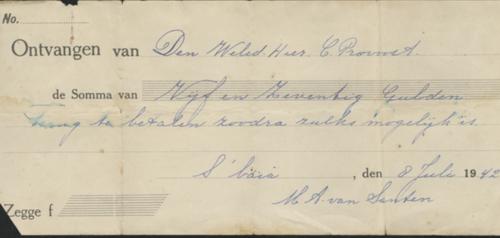 No.
Ontvangen van Den Weled. Heer C. Provinst
de Somma van Vijf en Zeventig Gulden
terug te betalen zoodra zulks mogelijk is.
S'baia , den 8 Juli 1942
M. A. van Santen
Zegge f